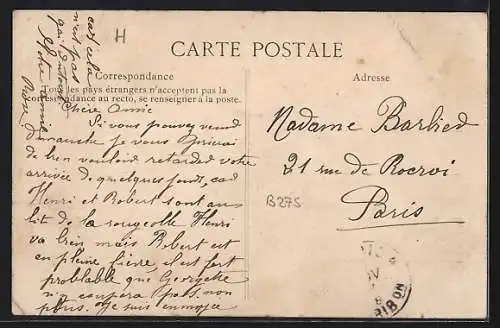 H
CARTE POSTALE
Correspondance
Tous les pays étrangers n'acceptent pas la
correspondance au recto, se renseigner à la poste.
Adresse
Chère Amie
Si vous pouvez vend
Dimanche je vous
de bien vouloir retarder votre
arrivée de quelques jours, car
Henri et Robert sont au
lit de la rougeolle Henri
va bien mais Robert est
en pleine fièvre il est fort
problable que Georgette
n'y coupera pas non
plus. Je suis ennuyée
car cela
n'est pas
gai
Votre amie
Madame Barbier
21 rue de Rocroi
Paris
B275